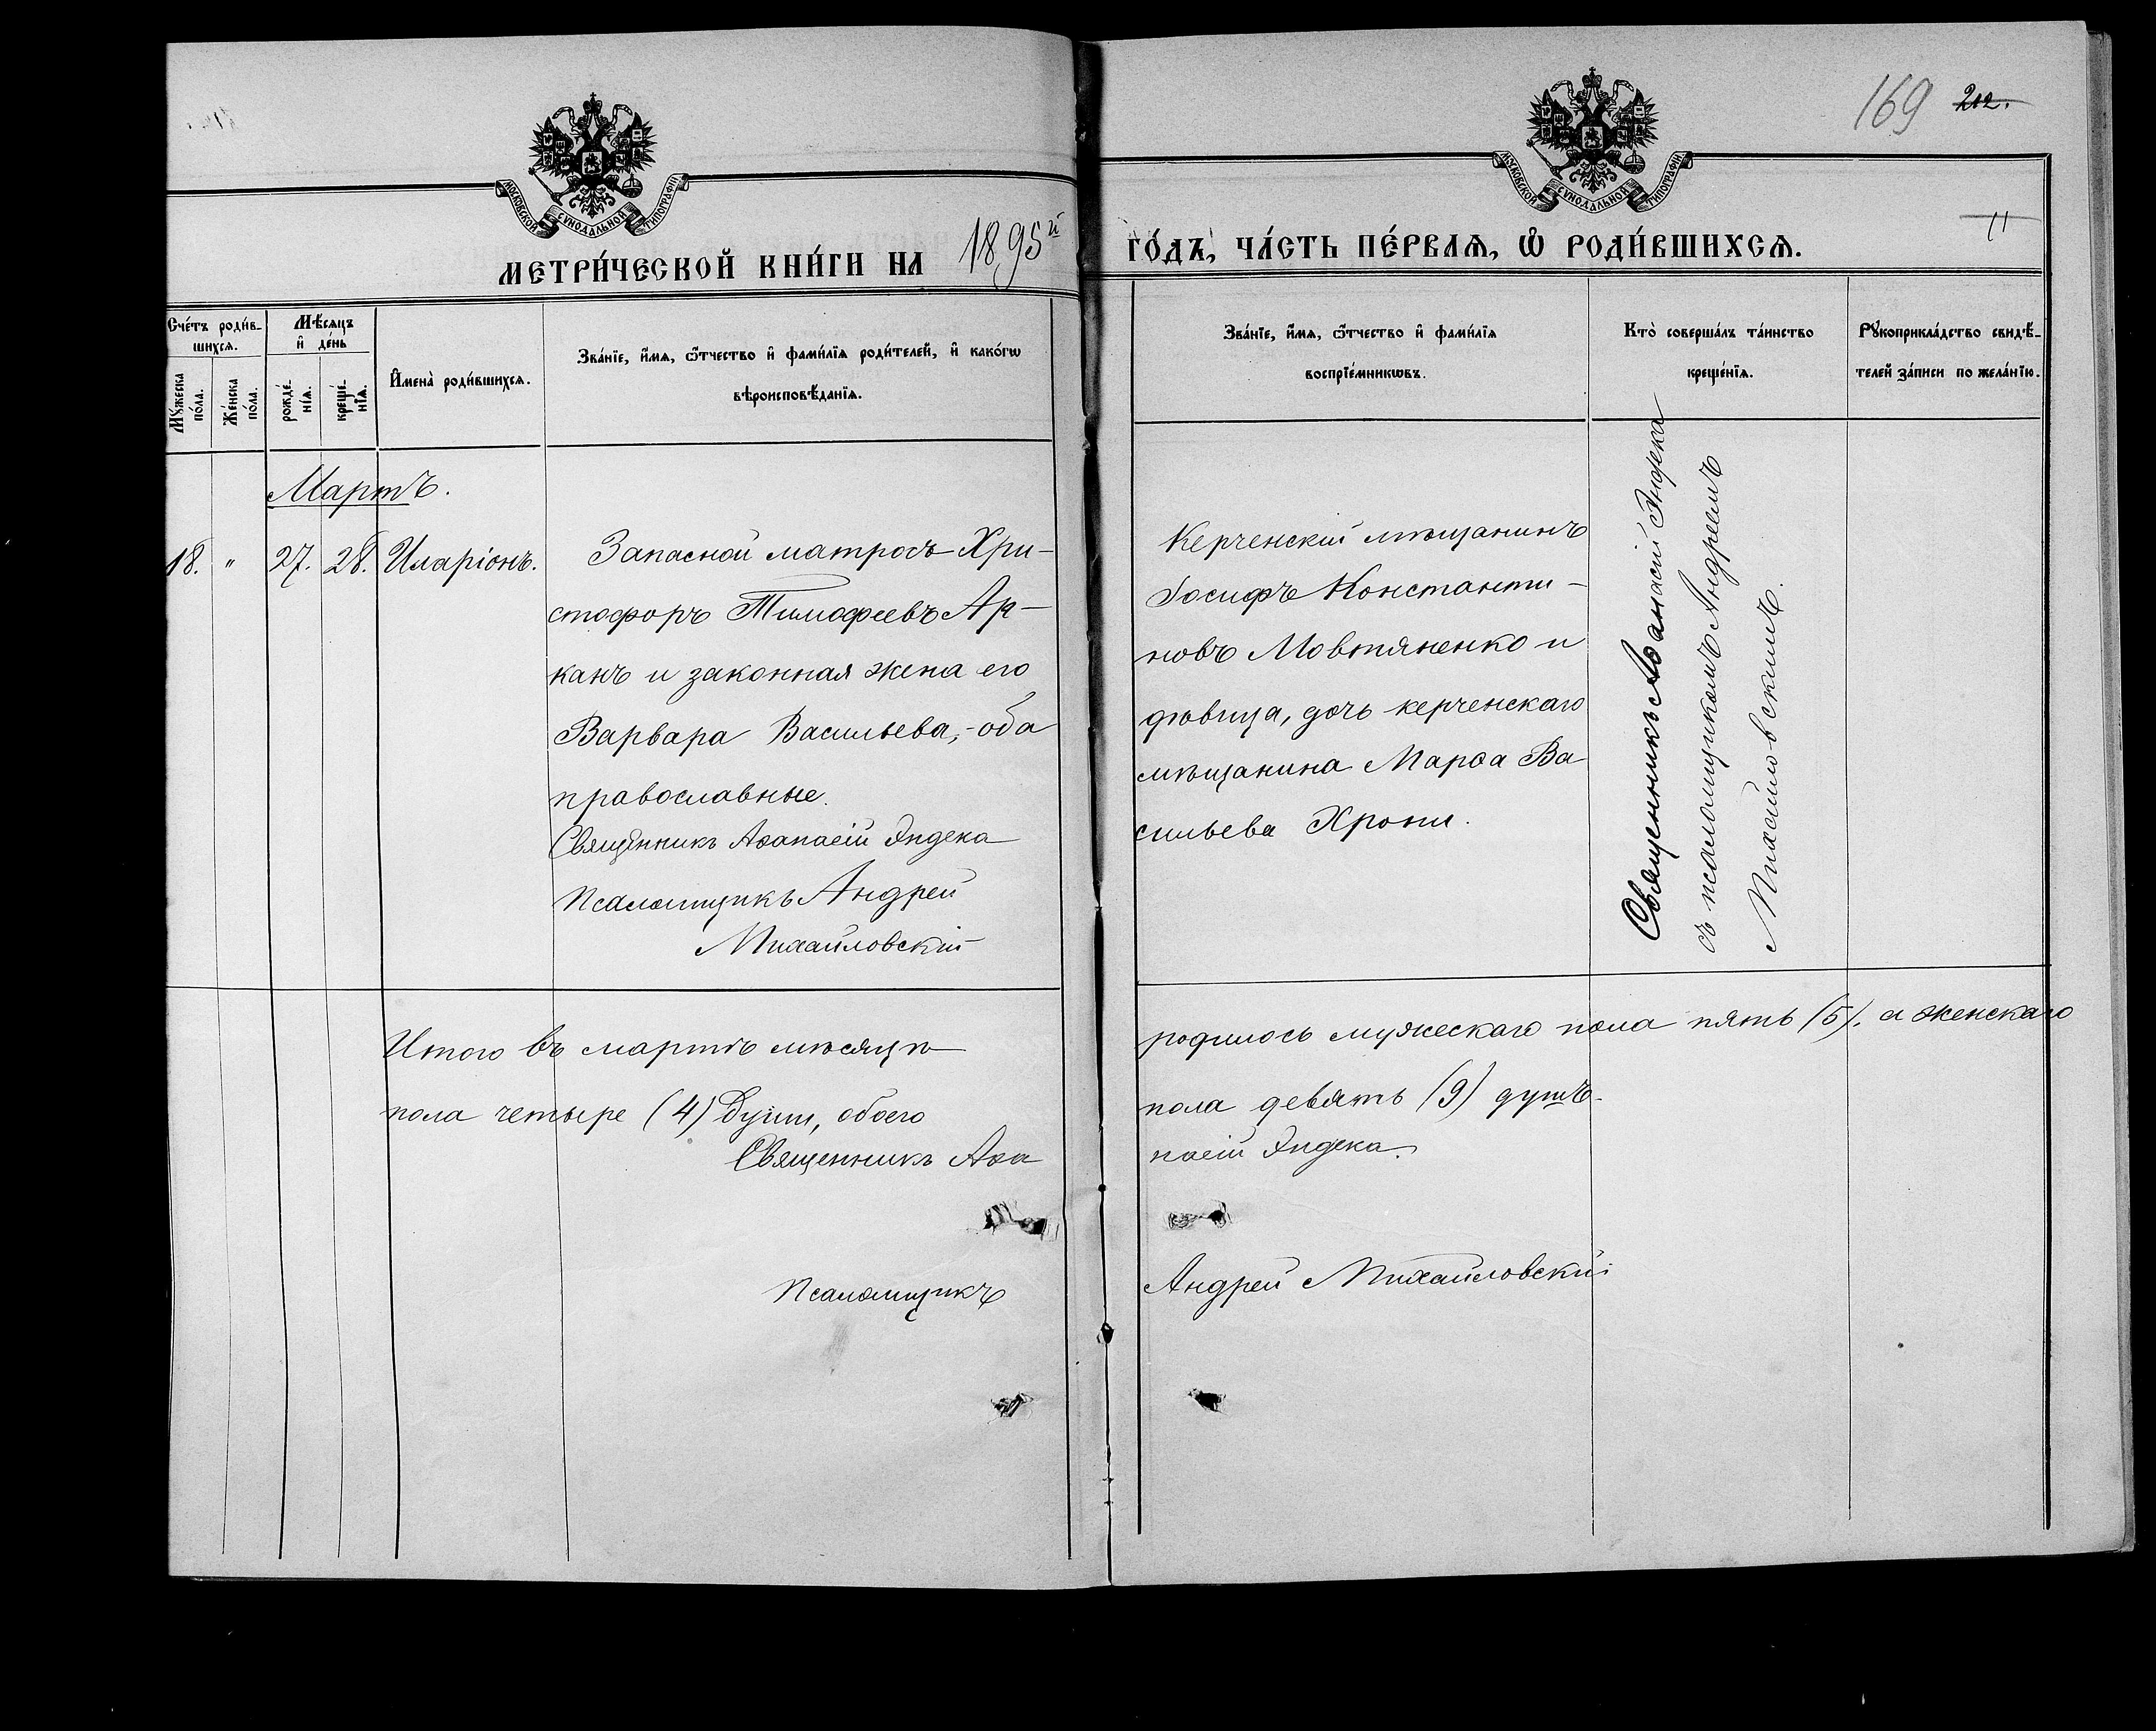 169 212.
МОСКОВСКОЙ СѴНОДАЛЬНОЙ ТИПОГРАФІИ
МОСКОВСКОЙ СѴНОДАЛЬНОЙ ТИПОГРАФІИ
11
МЕТРИ́ЧЕСКОЙ КНИ́ГИ НА 1895й ГО́ДЪ, ЧА́СТЬ ПЕ́РВАѦ, Ѡ҆ РОДИ́ВШИХСѦ.
Счéтъ роди́в-
шихсѧ.
Мꙋ́жеска по́ла.
Жéнска по́ла.
Мѣ́сѧцъ
и҆ дéнь
рождé-
нїѧ.
крещé-
нїѧ.
И҆менà роди́вшихсѧ.
Звáнїе, и҆́мѧ, ѻ҆́тчество и҆ фами́лїѧ роди́телей, и҆ какóгѡ
вѣроисповѣ́данїѧ.
Звáнїе, и҆́мѧ, ѻ҆́тчество и҆ фами́лїѧ
воспрїéмникѡвъ.
Ктò совершáлъ тáинство
крещéнїѧ.
Рꙋкоприклáдство свидѣ́-
телей зáписи по желáнїю.
Мартъ.
18. " 27. 28. Иларіонъ.
Запасной матросъ Хри-
стофоръ Тимофеевъ Ар-
канъ и законная жена его
Варвара Васильева,-оба
православные.
Священникъ Аѳанасій Эндека
Псаломщикъ Андрей
Михайловскій
Керченскій мѣщанинъ
Іосифъ Константи-
новъ Мовтяненко и
дѣвица, дочь керченскаго
мѣщанина Марѳа Ва-
сильева Хрони.
Священникъ Аѳанасій Эндека
съ псаломщикомъ Андреемъ
Михайловскимъ.
Итого въ мартѣ мѣсяцѣ родилось мужескаго пола пять (5). а женскаго
пола четыре (4) души, обоего пола девять (9) душъ.
Священникъ Аѳанасій Эндека.
Псаломщикъ Андрей Михайловскій